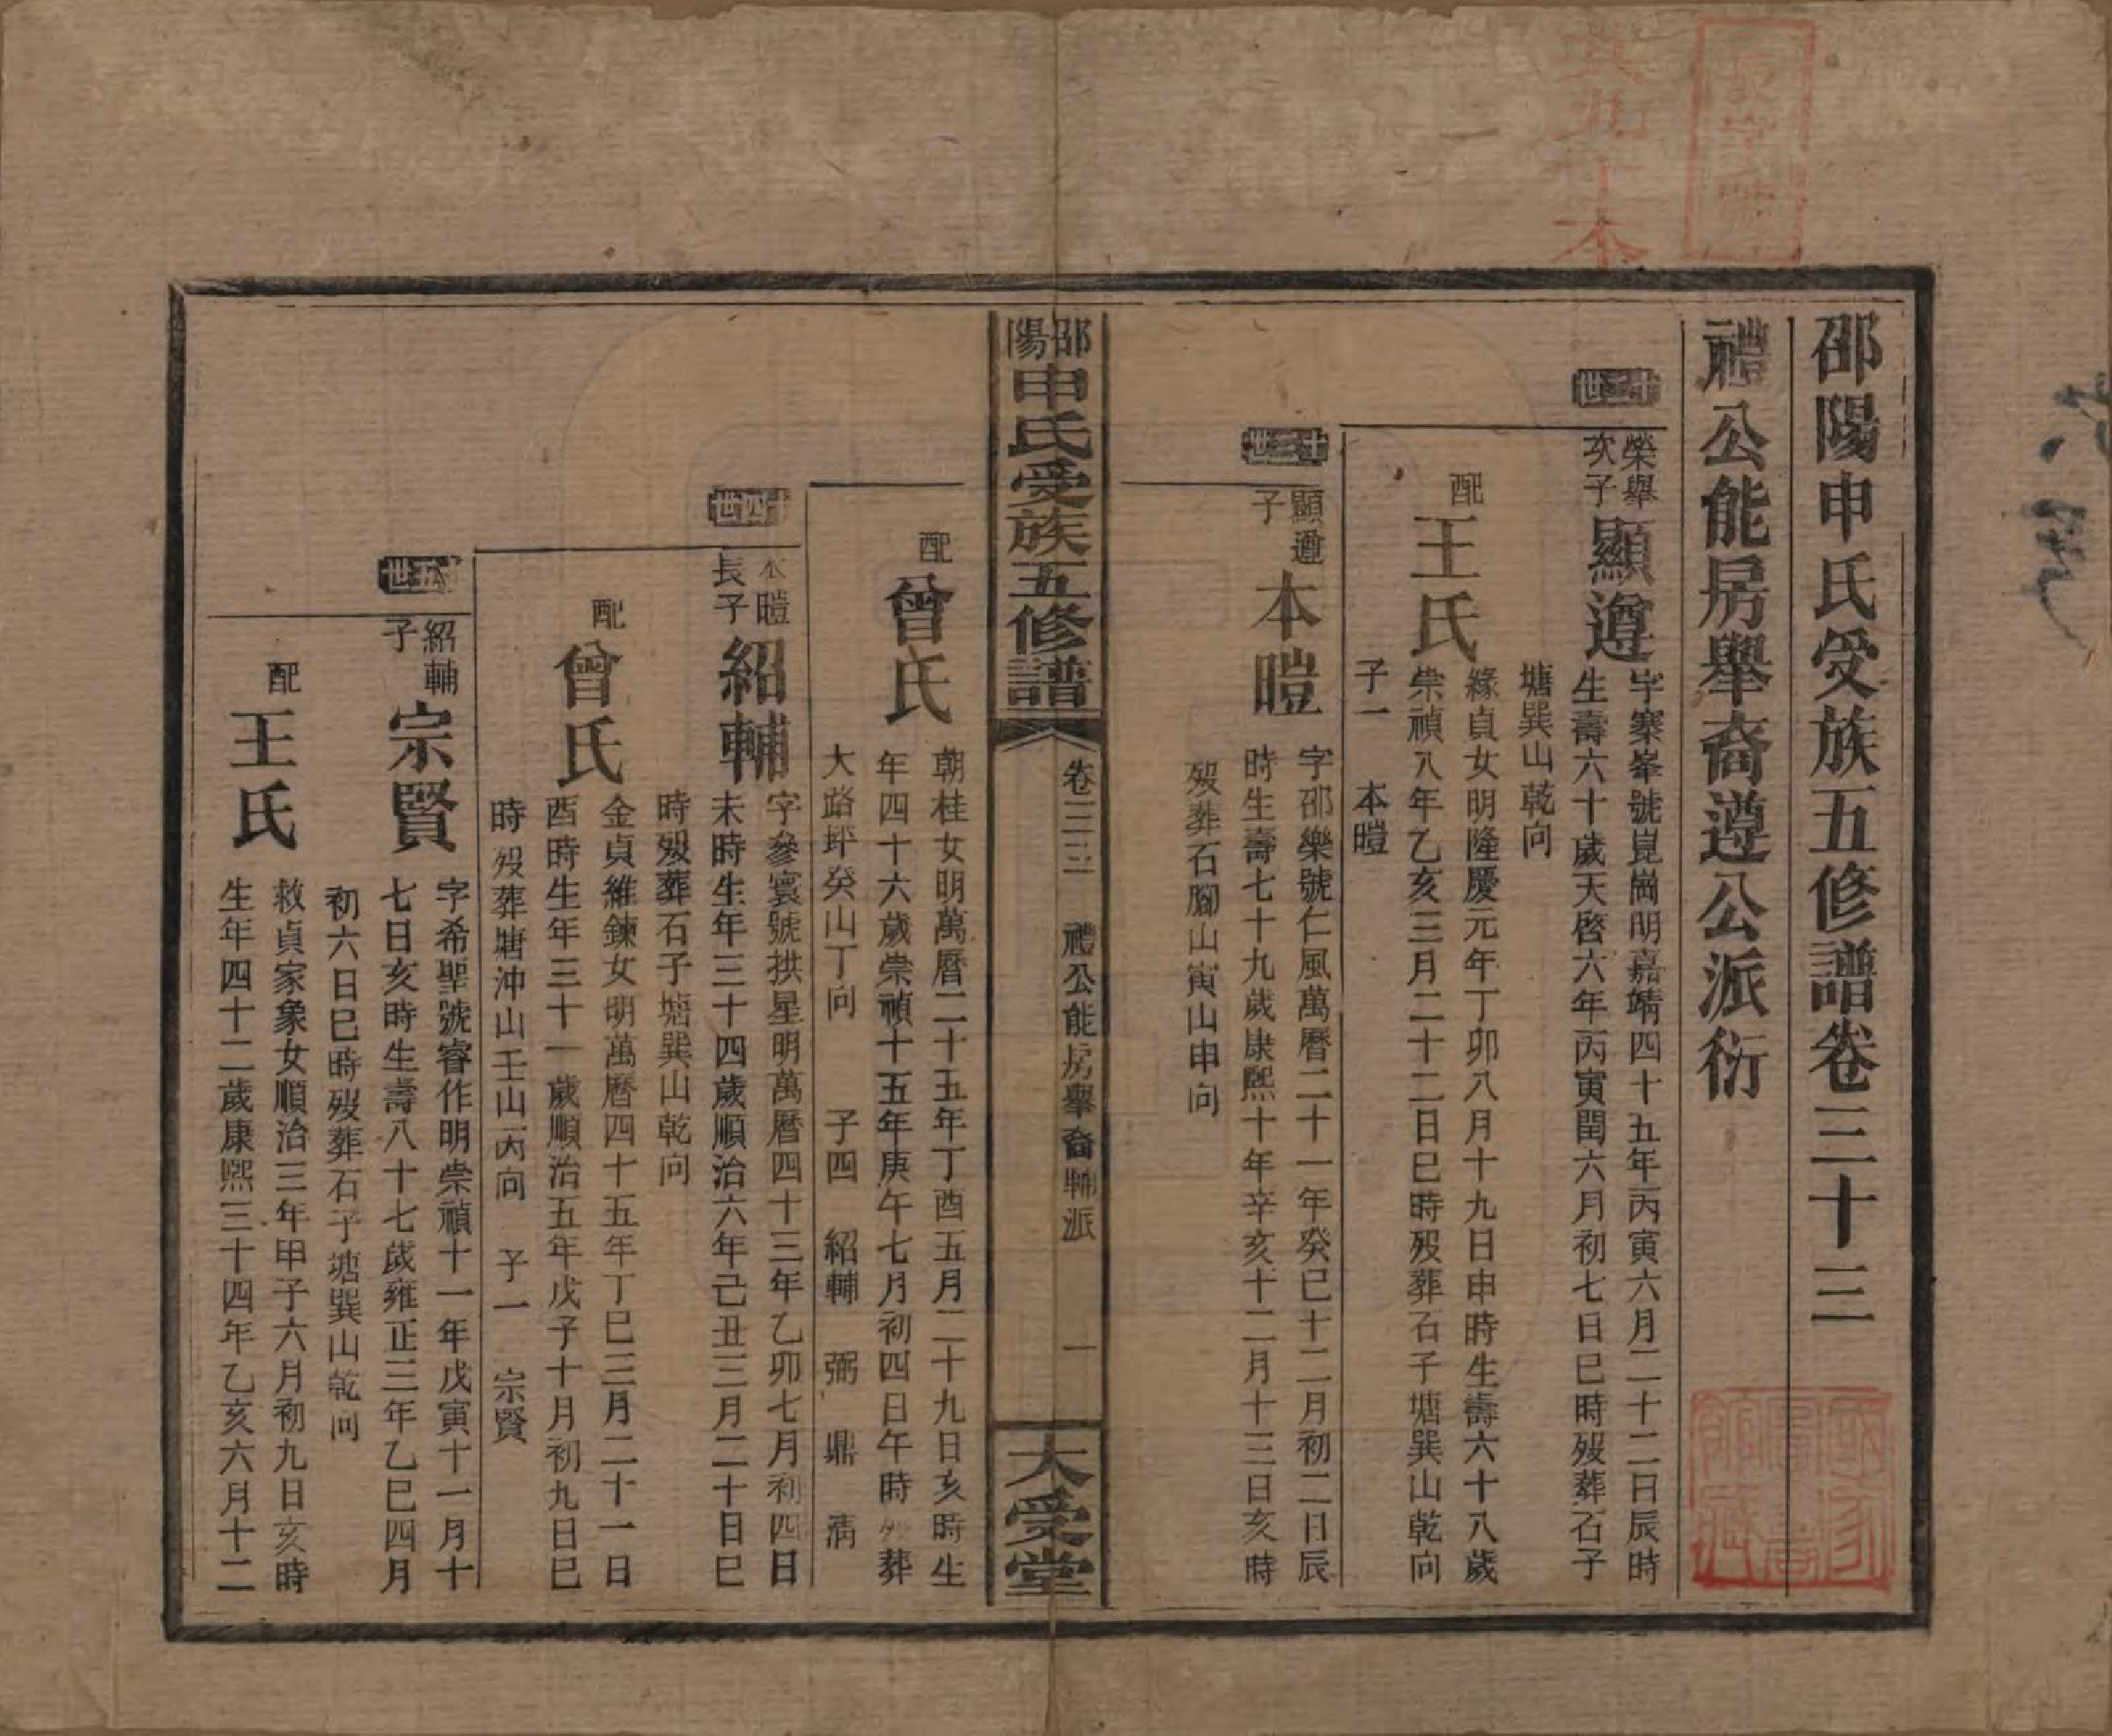 邵陽申氏受族五修譜卷三十三
禮公能房舉裔遵公派衍
十二世
榮舉
次子
顯遵
字寨峯號崑崗明嘉靖四十五年丙寅六月二十二日辰時
生壽六十歲天啓六年丙寅閏六月初七日巳時歿葬石子
塘巽山乾向
配
王氏
緣貞女明隆慶元年丁卯八月十九日申時生壽六十八歲
崇禎八年乙亥三月二十二日巳時歿葬石子塘巽山乾向
子一　本暟
十三世
顯遵
子
本暟
字邵樂號仁風萬曆二十一年癸巳十二月初二日辰
時生壽七十九歲康熙十年辛亥十二月十三日亥時
歿葬石腳山寅山申向
邵陽
申氏受族五修譜
卷三三　禮公能房舉裔輔派　一
大受堂
配
曾氏
朝桂女明萬曆二十五年丁酉五月二十九日亥時生
年四十六歲崇禎十五年庚午七月初四日午時歿葬
大路坪癸山丁向　子四　紹輔　弼　鼎　清
十四世
本暟
長子
紹輔
字參寰號拱星明萬曆四十三年乙卯七月初四日
未時生年三十四歲順治六年己丑三月二十日巳
時歿葬石子塘巽山乾向
配
曾氏
金貞維鍊女明萬曆四十五年丁巳三月二十一日
酉時生年三十一歲順治五年戊子十月初九日巳
時歿葬塘沖山壬山丙向　子一　宗賢
十五世
紹輔
子
宗賢
字希聖號睿作明崇禎十一年戊寅十一月十
七日亥時生壽八十七歲雍正三年乙巳四月
初六日巳時歿葬石子塘巽山乾向
配
王氏
救貞家象女順治三年甲子六月初九日亥時
生年四十二歲康熙三十四年乙亥六月十二